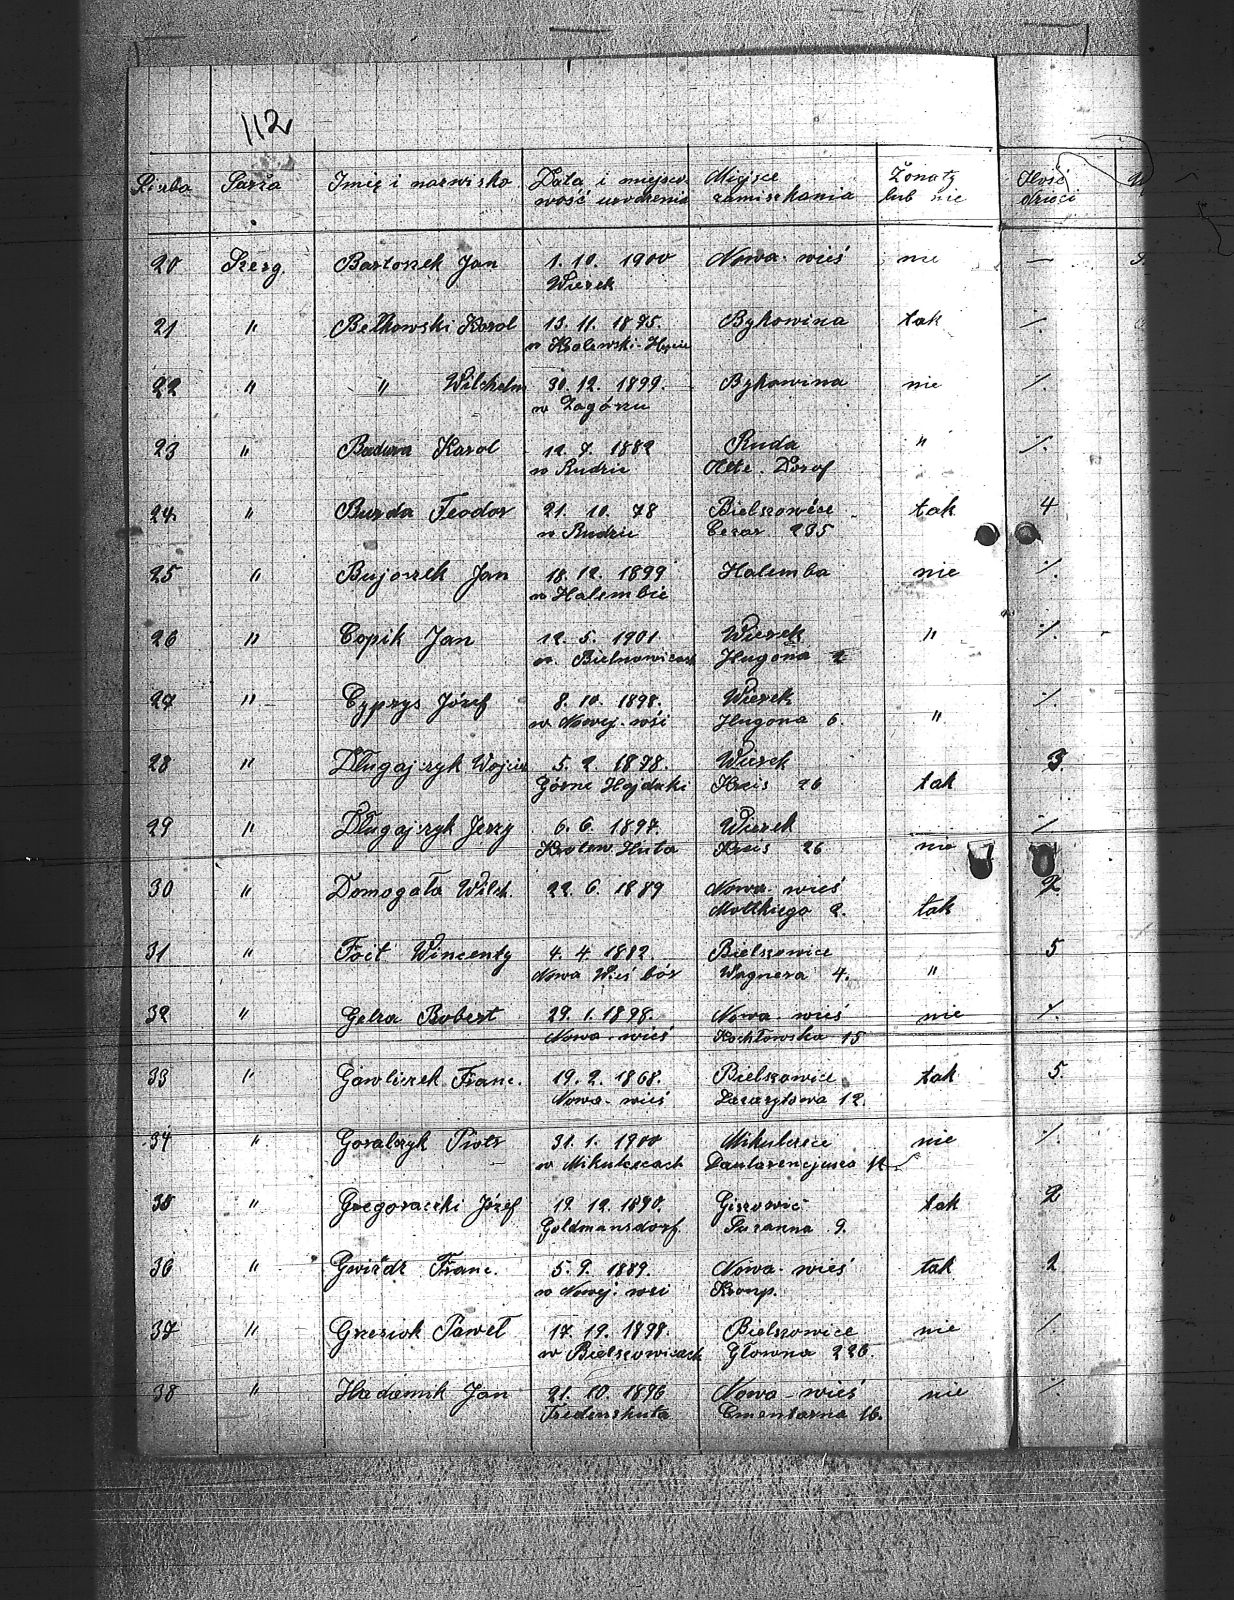 112
Liczba Szarża Imię i nazwisko Data i miejsco- Miejsce Żonaty Ilość
wość urodzenia zamieszkania lub nie dzieci
20 Szerg. Bartoszek Jan 1. 10. 1900 Nowa-wieś nie —
Wierek
21 " Bełkowski Karol 13. 11. 1875. Bykowina tak /.
w Krolewski-Hucie
22 " " Wilchelm 30. 12. 1899. Bykowina nie /.
w Zagórzu
23 " Badura Karol 12. 7. 1882 Ruda " /.
w Rudzie Alte. Dorof
24. " Burda Teodor 21. 10. 78 Bielszowice tak 4
w Rudzie Cezar 235
25 " Bujoczek Jan 18. 12. 1899 Halemba nie /.
w Halembie
26 " Copik Jan 12. 5. 1901 Wierek " /.
w. Hugona 2
27 " Cyprys Józef 8. 10. 1898. Wierek /.
w Nowej-wsi Hugona 6. "
28 " Długajczyk Wojciech 5. 2. 1878. Wierek 3.
Górne Hajduki Kreis 26 tak
29 " Długajczyk Jerzy 6. 6. 1897. Wierek /.
Krolew. Huta Kreis 26 nie
30 " Domogała Wilch. 22. 6. 1889 Nowa-wieś 2.
Moltkiego 2. tak
31 " Foit Wincenty 4. 4. 1882. Bielszowice 5
Nowa Wieś bór Wagnera 4. "
32 " Gelza Robert 29. 1. 1898. Nowa-wieś nie /.
Nowa-wieś Kochłowska 15
33 " Gawliczek Franc. 19. 2. 1868. Bielszowice tak 5.
Nowa-wieś 12.
34 " Goralczyk Piotr 31. 1. 1900 Mikulczce nie /.
w Mikulczcach 12
35 " Gregoraczki Józef 19. 12. 1890. Giszowiec tak 2
Goldmansdorf. Zuzanna 9.
36 " Gwiżdż Franc. 5. 9. 1889. Nowa-wieś tak 2
w Nowej-wsi Kronp.
37 " Grzesiok Paweł 17. 12. 1898. Bielszowice nie /.
w Bielszowicach Głowna 226.
38 " Hadamik Jan 21. 10. 1896 Nowa-wieś nie /.
Fridenshuta Cmentarna 16.